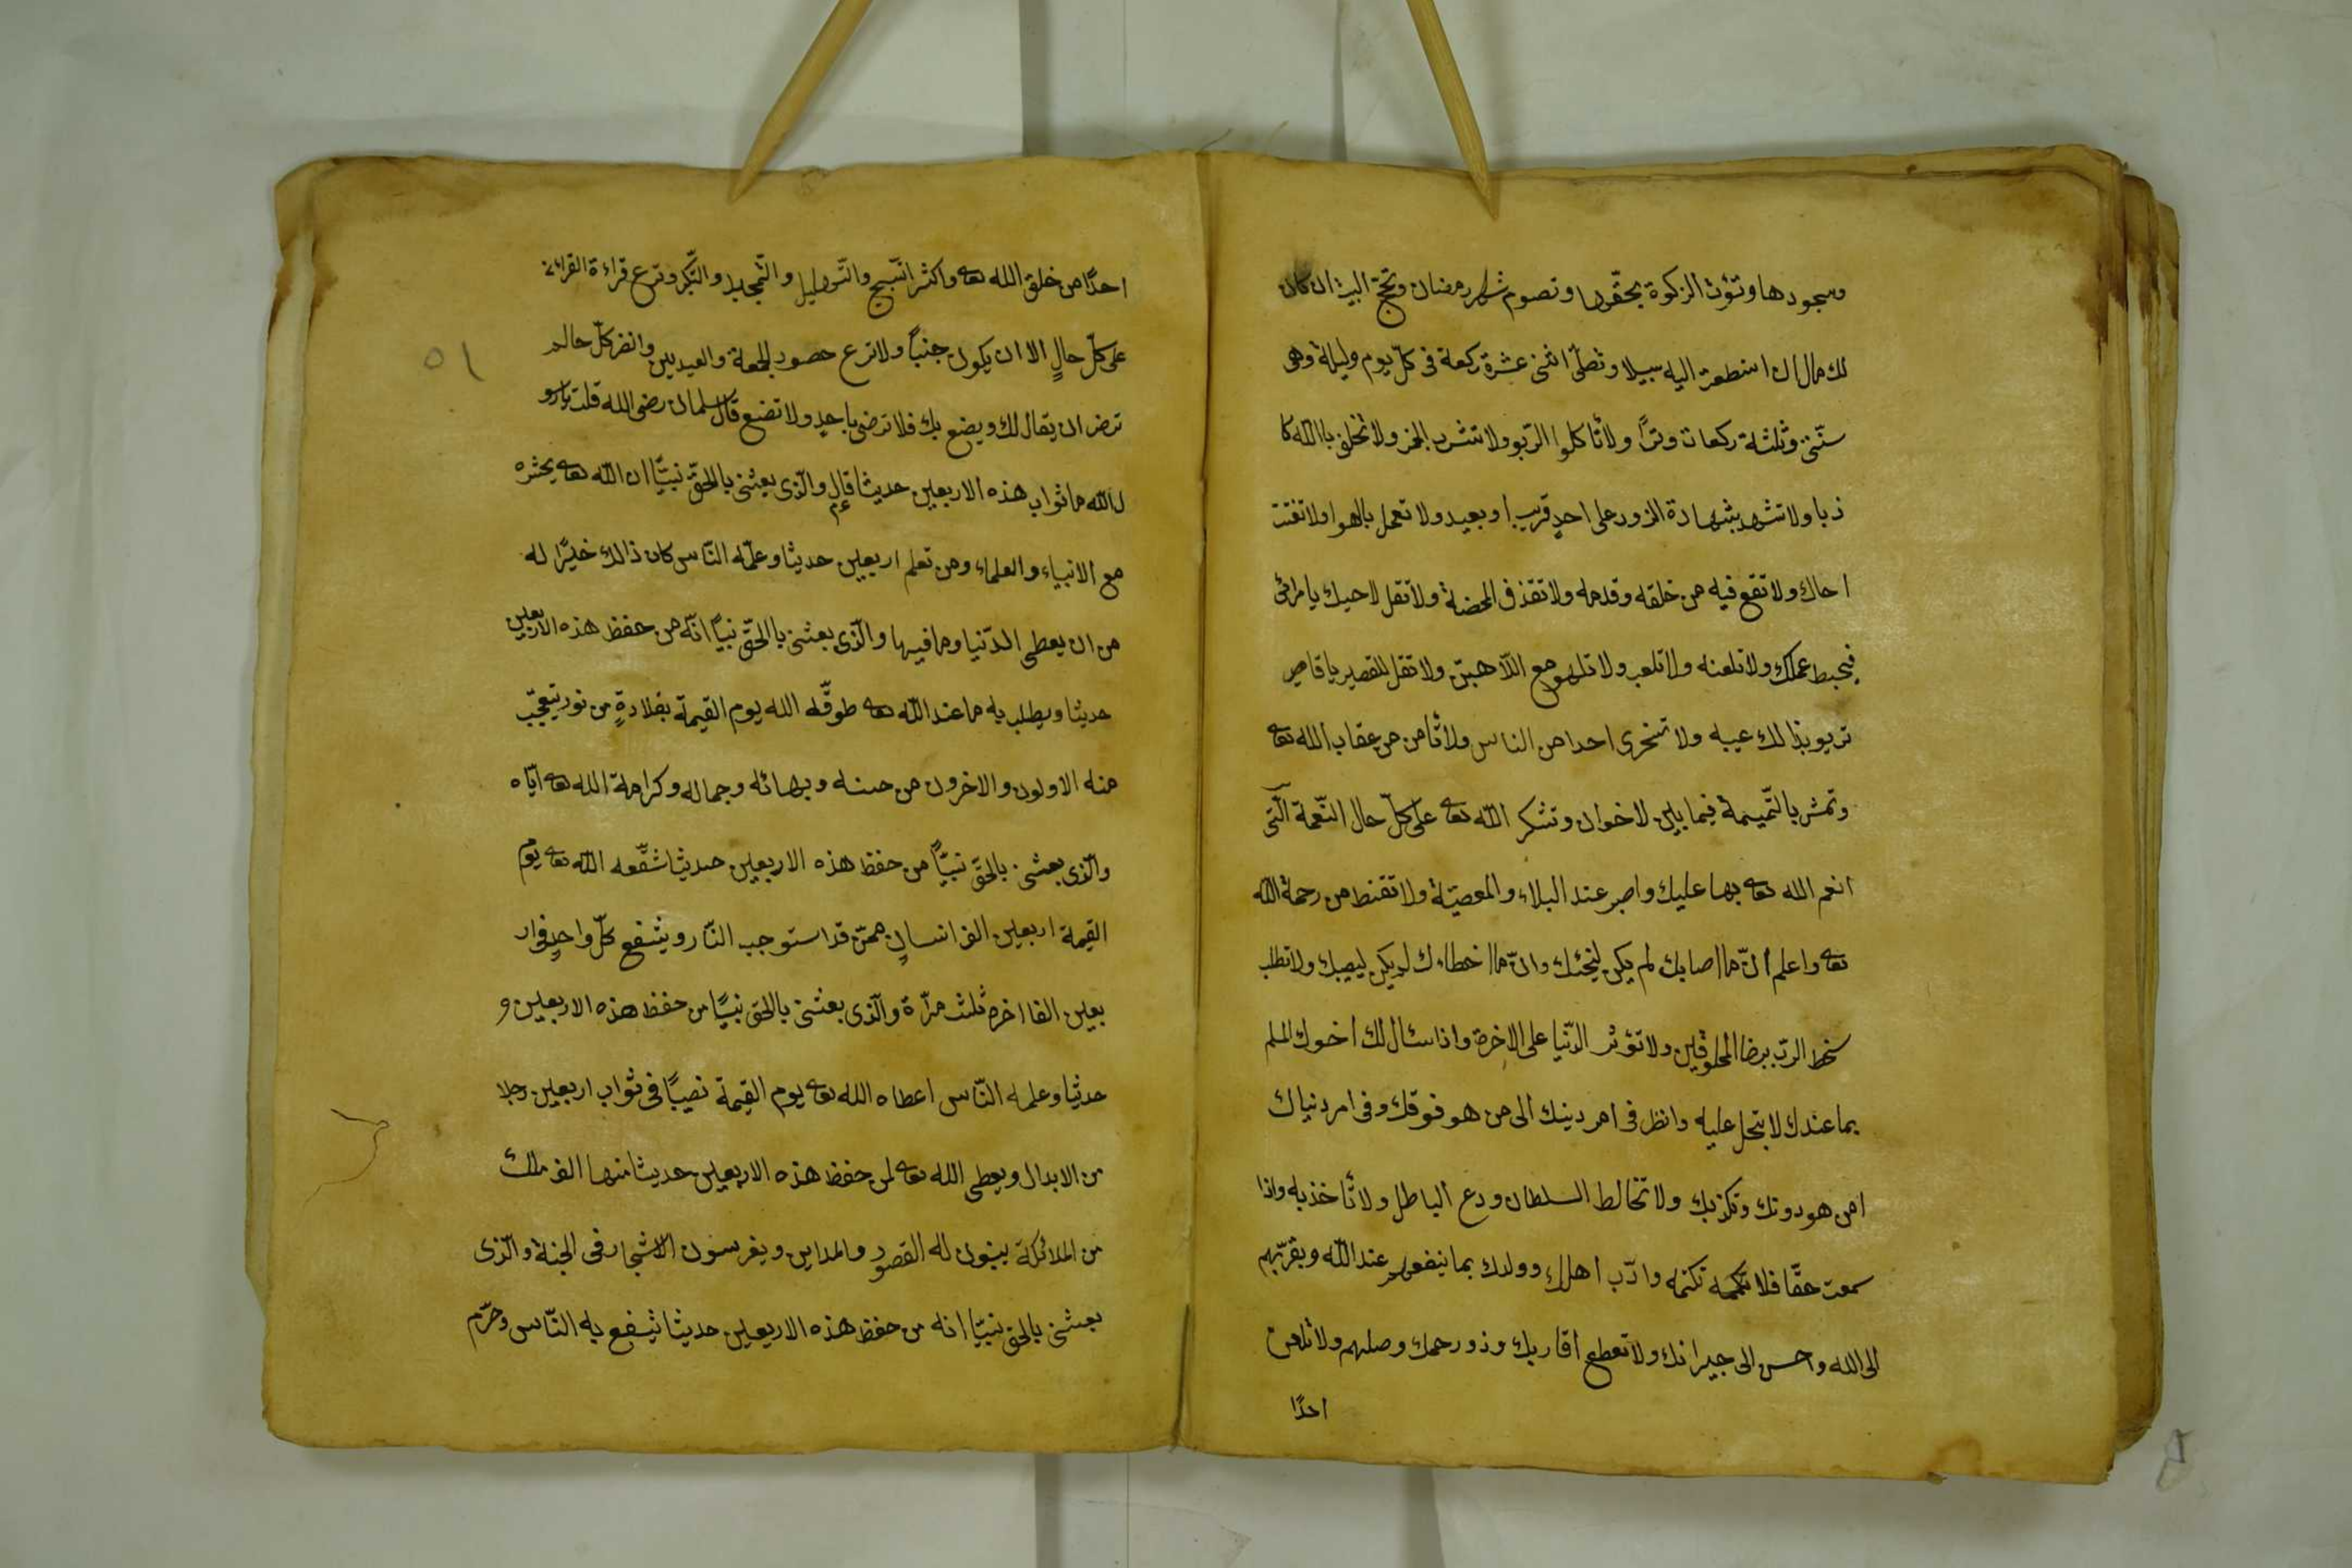 وسجودها وتؤت الزكوة بحقّها وتصوم شهر رمضان وتحجّ البيت ان كان
لك مال ان استطعت اليه سبيلا وتصلّى اثنى عشرة ركعة فى كلّ يوم وليلة وهى
سنّتى وثلثة ركعات وترًا ولا تأكلوا الرّبو ولا تشرب الخمر ولا تحلف باالله كا
ذبا ولا تشهد بشهادة الزور على احدٍ قريب او بعيد ولا تعمل بالهوا ولا تغتب
احاك ولا تقع فيه من خلقه وقدمه ولا تقذف المحضة ولا تقل لاحيك يا مرائى
فيحبط عملك ولا تلعنه ولا تلعب ولا تلهو مع اللّاهين ولا تقل للقصير يا قاصر
تريو بذالك عيبه ولا تسخرى احدا من الناس ولا تأمن من عقاب الله تعه
وتمش بالنّميمة فيما بين لاخوان وتشكر اللّه تعه على كلّ حال النّعمة الّتى
انعم الله تعه بها عليك واصبر عند البلاء والمعصيّة ولا تقنط من رحمة اللّه
تعه واعلم انّ ما اصابك لم يكن ليخئك وانّ ما اخطاءك لم يكن ليصبك ولا تطلب
سخط الربّ برضا المخلوقين ولا تؤثر الدّنيا على الاخرة واذا سئال لك اخوك المسلم
بما عندك لا تبخل عليه وانظر فى امر دينك الى من هو فوقك وفى امر دنياك
امن هو دونك وتكذبك ولا تخالط السلطان ودع الباطل ولا تأخذ به واذا
سمعت حقّا فلا تكمه تكتمه وادّب اهلك وولدك بما ينفعهم عند اللّه ويقربّهم
الى الله واحسن الى جيرانك ولا تعطع اقاربك وذو رحمك وصلهم ولا تلعن
احدًا
احدًا من خلق الله تعه واكثر التّسبيح والتّهليل والتّمجيد والتّكبر وترع قراءة القرائن
على كلّ حالٍ الا ان يكون جنبًا ولا ترع حصور الجمعة والعيديين وانظر كلّ حالم
ترض ان يقال لك ويضع بك فلا ترضى باحدٍ ولا تضع قال سلمان رضى الله قلت يارسو
ل اللّه ما ثواب هذه الاربعين حديثا قال والّذى بعثنى بالحقّ نبيّا ان اللّه تعه يحشره
مع الانبياء والعلماء ومن تعلم اربعين حديثا وعلّمه النّاس كان ذالك خيرًا له
من ان يعطى الدّنيا وما فيها والّذى بعثنى باالحقّ نبيًا انّه من حفظ هذه الاربعين
حديثا ويطلب به ما عند اللّه تعه طوقّه الله يوم القيمة بقلادةٍ من نور يتعجّب
منه الاولون والاخرون من حسنه وبهائه وجماله وكرامة الله تعه ايّاه
والّذى بعثنى بالحقّ نبيًّا من حفظ هذه الاربعين حديثا شفّعه اللّه تعه يوم
القيمة اربعين الف انسانٍ ممّن قد استوجب النّار ويشفع كلّ واحدٍ فى ار
بعين الفا اخرة ثلث مرّة والّذى بعثنى بالحق نبيًا من حفظ هذه الاربعين و
حديثا وعلمه النّاس اعطاه الله تعه يوم القيمة نصيبًا فى ثواب اربعين رجلا
من الابدال ويعطى الله تعه لمن حفظ هذه الاربعين حديثا منها الف ملك
من الملائكة يبنون له القصور والمداين ويغرسون الاشجار فى الجنة والّذى
بعثنى بالحق نبيّا انه من حفظ هذه الاربعين حديثا يشفع به النّاس وحرّم
٥١